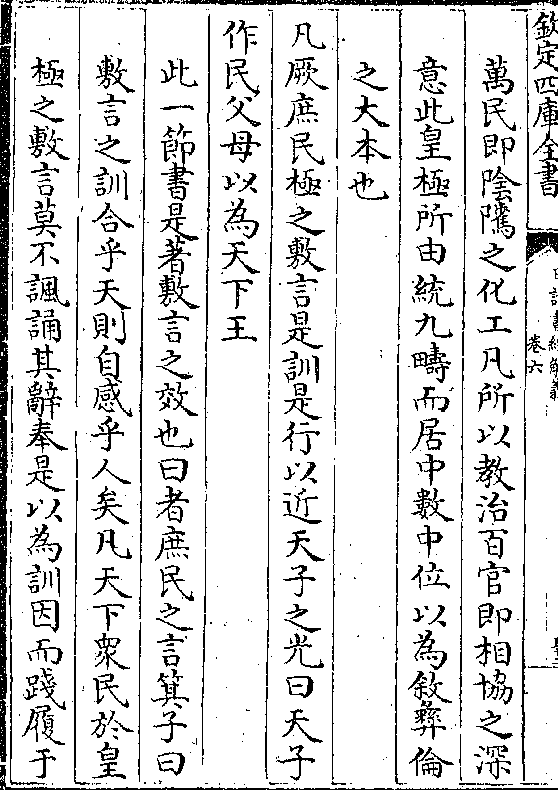 欽定四庫全書
日講書經解義
卷六
萬民即陰隲之化工凡所以教治百官即相協之深
意此皇極所由統九疇而居中數中位以為敘彝倫
之大本也
凡厥庶民極之敷言是訓是行以近天子之光曰天子
作民父母以為天下王
此一節書是著敷言之效也曰者庶民之言箕子曰
敷言之訓合乎天則自感乎人矣凡天下衆民於皇
極之敷言莫不諷誦其辭奉是以為訓因而踐履于